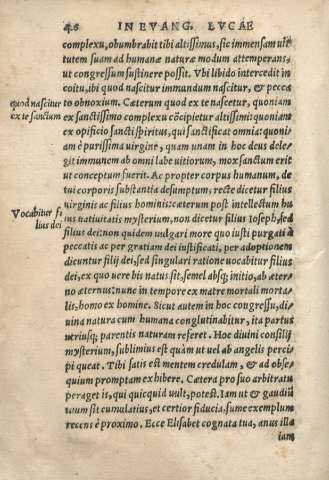 46 IN EVANG. LVCAE
complexu, obumbrabit tibi altissimus, sic immensam uir
tutem suam ad humanæ naturæ modum attemperans,
ut congressum sustinere possit. Vbi libido intercedit in
coitu, ibi quod nascitur immundum nascitur, & pecca
quod nascitur
ex te sanctum
to obnoxium. Cæterum quod ex te nascetur, quoniam
ex sanctissimo complexu cōcipietur altissimi: quoniam
ex opificio sancti spiritus, qui sanctificat omnia: quoni
am è purissima uirgine, quam unam in hoc deus deleg
git immunem ab omni labe uitiorum, mox sanctum erit
ut conceptum fuerit. Ac propter corpus humanum, de
tui corporis substantia desumptum, recte dicetur filius
Vocabitur fi
lius dei
uirginis ac filius hominis: cæterum post intellectum hu
ius natiuitatis mysterium, non dicetur filius Ioseph, sed
filius dei: non quidem uulgari more quo iusti purgati à
peccatis ac per gratiam dei iustificati, per adoptionem
dicuntur filij dei, sed singulari ratione uocabitur filius
dei, ex quo uere bis natus sit, semel absq; initio, ab æter
no æternus: nunc in tempore ex matre mortali morta
lis, homo ex homine. Sicut autem in hoc congressu, di
uina natura cum humana conglutinabitur, ita partus
utriusq; parentis naturam referet. Hoc diuini consilij
mysterium, sublimius est quàm ut uel ab angelis perci
pi queat. Tibi satis est mentem credulam, & ad obse
quium promptam exhibere. Cætera pro suo arbitratu
peraget is, qui quicquid uult, potest. Iam ut & gaudiū
tuum sit cumulatius, et certior fiducia, sume exemplum
recens è proximo. Ecce Elisabet cognata tua, anus illa
iam